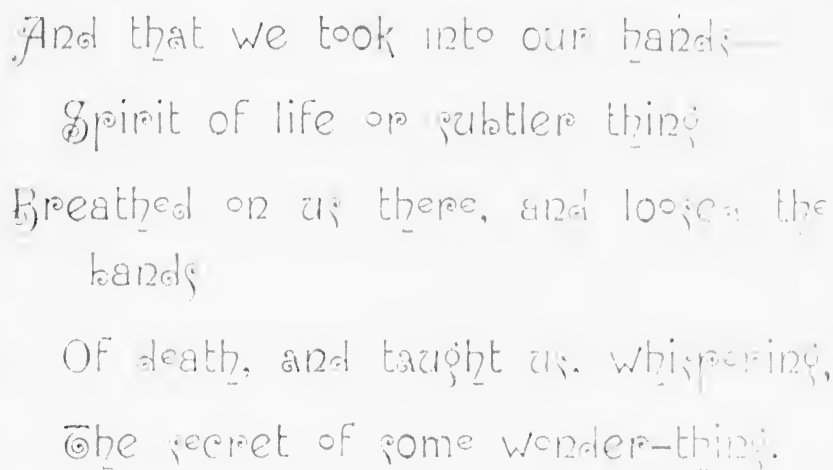 And that we took into our hands—
Spirit of life or subtler thing
Breathed on us there, and loosed the
bands
Of death, and taught us, whispering,
The secret of some wonder-thing.